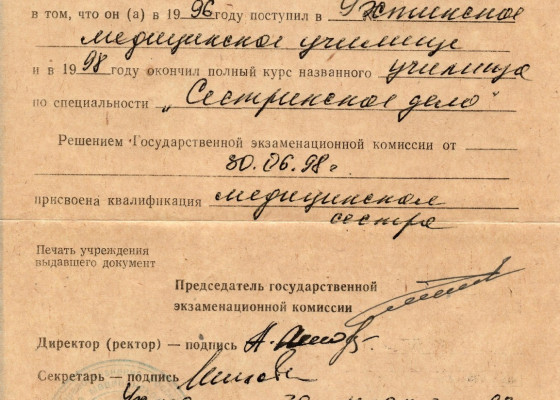 в том, что он (а) в 1996 году поступил в Ухтинское
медицинское училище
и в 1998 году окончил полный курс названного училища
по специальности „Сестринское дело"
Решением Государственной экзаменационной комиссии от
30.06.98г
присвоена квалификация медицинская
сестра
Печать учреждения
выдавшего документ
Председатель государственной
экзаменационной комиссии
Директор (ректор) — подпись
Секретарь — подпись